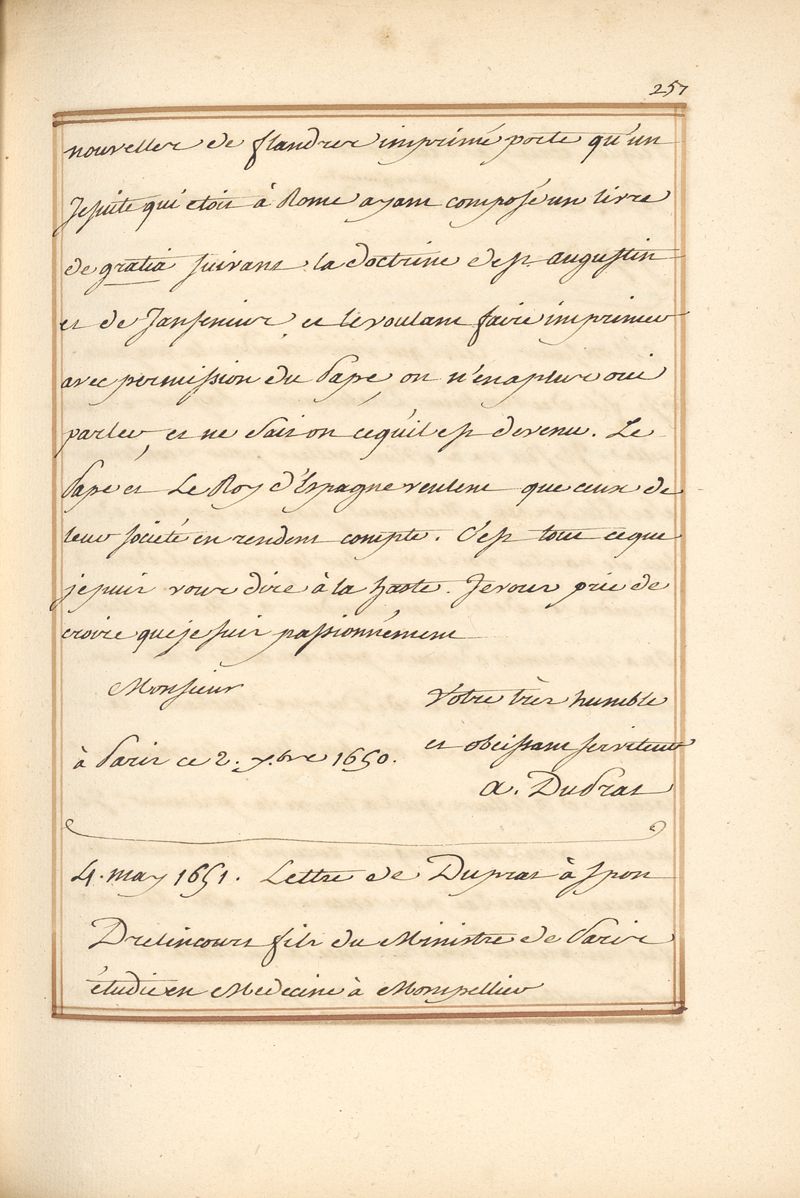 257
nouvelles de flandres imprimé porte qu'un
Jesuite qui etoit à Rome ayant composé un livre
de gratia suivant la doctrine de st. augustin
et de Jansenius, et le voulant faire imprimer
avec permission du Pape, on n'en a plus oui
parler, et ne sait on ce qu'il est devenu. Le
Pape et Le Roy d'Espagne veulent que ceux de
leur société en rendent compte. C'est tout ce que
je puis vous dire à la haste. Je vous prie de
croire que je suis passionnément
Monsieur
Votre très humble
et obeissant serviteur
à Paris ce 2. 7.bre 1650.
A. Du Prat
4. may 1651. Lettre de Duprat à Spon
Drelincourt fils du Ministre de Paris
étudie en Medecine à Montpellier